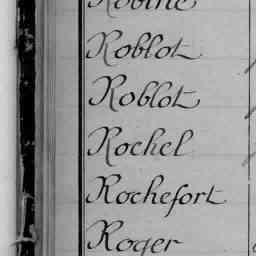 Robine
Roblot
Roblot
Rochel
Rochefort
Roger